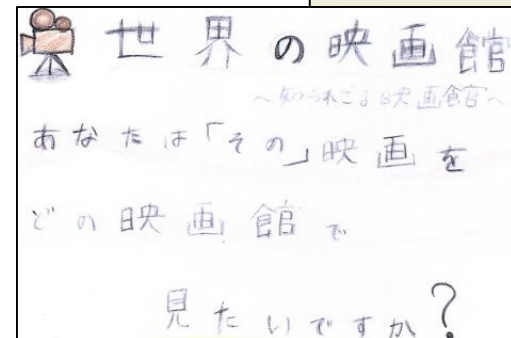 世界の映画館
～知られざる映画館～
あなたは「その」映画を
どの映画館で
見たいですか？